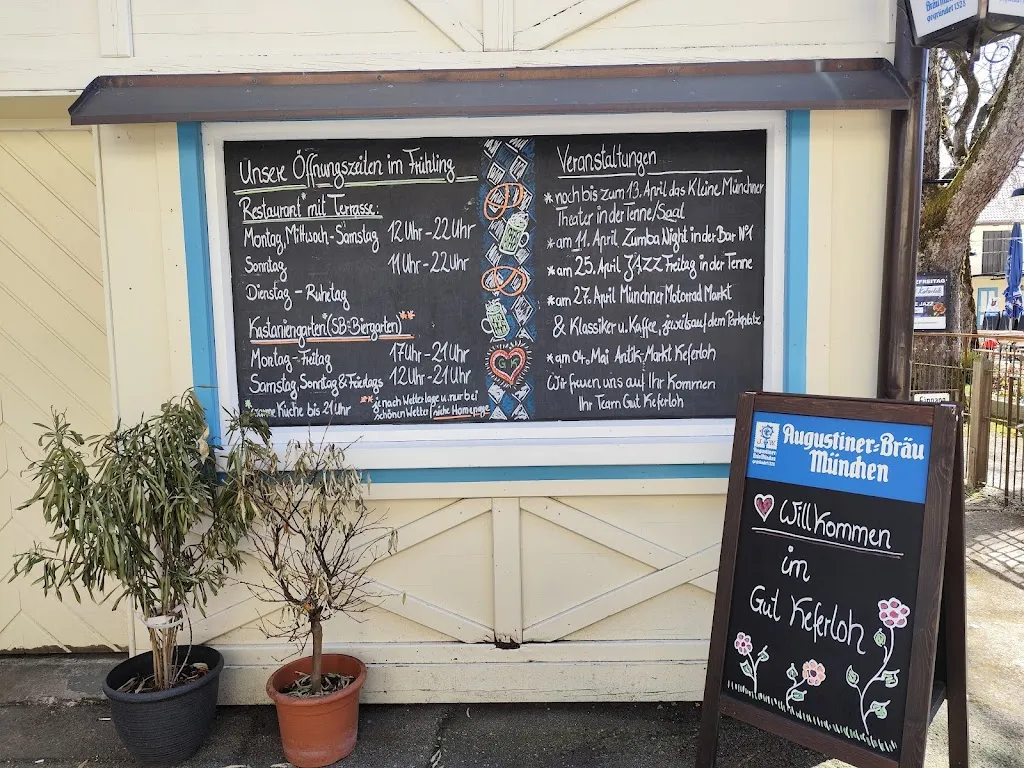 Unsere Öffnungszeiten im Frühling
Restaurant* mit Terrasse:
Montag, Mittwoch - Samstag 12 Uhr - 22 Uhr
Sonntag 11 Uhr - 22 Uhr
Dienstag - Ruhetag
Kastaniengarten (SB-Biergarten)**
Montag - Freitag 17 Uhr - 21 Uhr
Samstag, Sonntag & Feiertags 12 Uhr - 21 Uhr
*warme Küche bis 21 Uhr
** je nach Wetterlage u. nur bei
schönen Wetter/siehe Homepage
GK
Veranstaltungen
* noch bis zum 13. April das Kleine Münchner
Theater in der Tenne/Saal
* am 11. April Zumba Night in der Bar N°1
* am 25. April JAZZ Freitag in der Tenne
* am 27. April Münchner Motorrad Markt
& Klassiker u. Kaffee, jeweils auf dem Parkplatz
* am 04. Mai Antik-Markt Keferloh
Wir freuen uns auf Ihr Kommen
Ihr Team Gut Keferloh
gegründet 1328
JAZZ
Eingang
Augustiner-Bräu
München
J W
Willkommen
im
Gut Keferloh